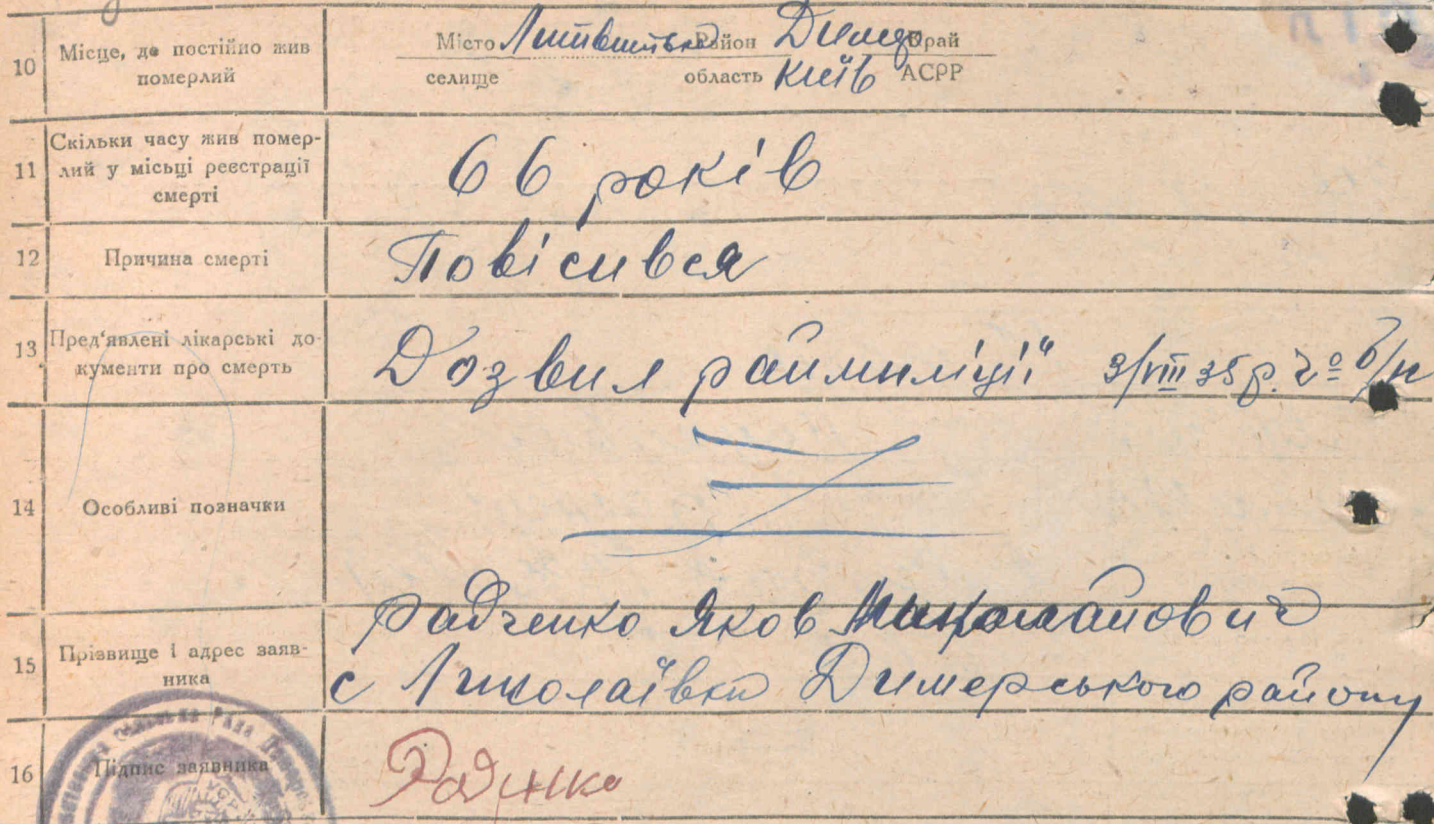 10 Місце, де постійно жив померлий
Місто Район Димер Край
селище область Київ АСРР
11 Скільки часу жив помер-
лий у місьці реєстрації
смерті
66 років
12 Причина смерті Повісився
13 Пред'явлені лікарські до-
кументи про смерть
Дозвил райміліції 3/VIII 35 р. б/н
14 Особливі позначки
Радченко Яков Миколайович
15 Прізвище і адрес заяв-
ника
с Димерського району
16 Підпис заявника Радченко